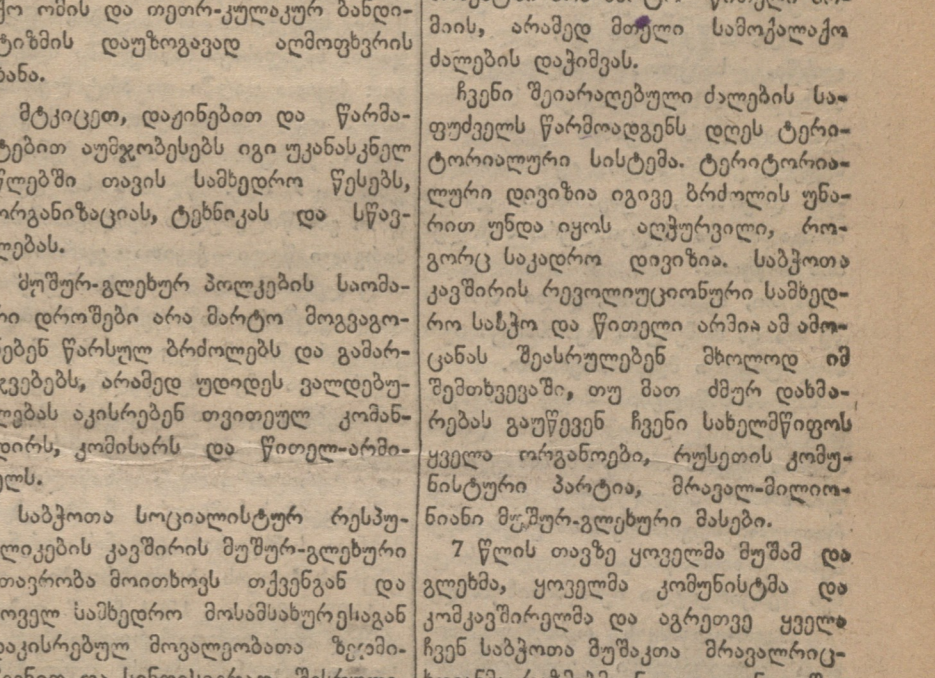 ომის და თეთრ-კულაკურ ბანდი-
ტიზმის დაუზოგავად აღმოფხვრის
მტკიცეთ, დაჟინებით და წარმა-
ტებით აუმჯობესებს იგი უკანასკნელ
წლებში თავის სამხედრო წესებს,
ორგანიზაციას, ტეხნიკას და სწავ-
ლებას.
მუშურ-გლეხურ პოლკების საომა-
რი დროშები არა მარტო მოგვაგო-
ნებენ წარსულ ბრძოლებს და გამარ-
ჯვებებს, არამედ უდიდეს ვალდებუ-
ლებას აკისრებენ თვითეულ კომან-
დირს, კომისარს და წითელ-არმი-
ელს.
საბჭოთა სოციალისტურ რესპუ-
ლიკების კავშირის მუშურ-გლეხური
მთავრობა მოითხოვს თქვენგან და
ყოველ სამხედრო მოსამსახურესაგან
დაკისრებულ მოვალეობათა
მიის, არამედ მთელი სამოქალაქო
ძალების დაჭიმვას.
ჩვენი შეიარაღებული ძალების სა-
ფუძველს წარმოადგენს დღეს ტერი-
ტორიალური სისტემა. ტერიტორია-
ლური დივიზია იგივე ბრძოლის უნა-
რით უნდა იყოს აღჭურვილი, რო-
გორც საკადრო დივიზია. საბჭოთა
კავშირის რევოლიუციონური სამხედ-
რო საბჭო და წითელი არმია ამ ამო-
ცანას შეასრულებენ მხოლოდ იმ
შემთხვევაში, თუ მათ ძმურ დახმა-
რებას გაუწევენ ჩვენი სახელმწიფოს
ყველა ორგანოები, რუსეთის კომუ-
ნისტური პარტია, მრავალ-მილიო-
ნიანი მუშურ-გლეხური მასები.
7 წლის თავზე ყოველმა მუშამ და
გლეხმა, ყოველმა კომუნისტმა და
კომკავშირელმა და აგრეთვე ყველა
ჩვენ საბჭოთა მუშაკთა მრავალრიც-